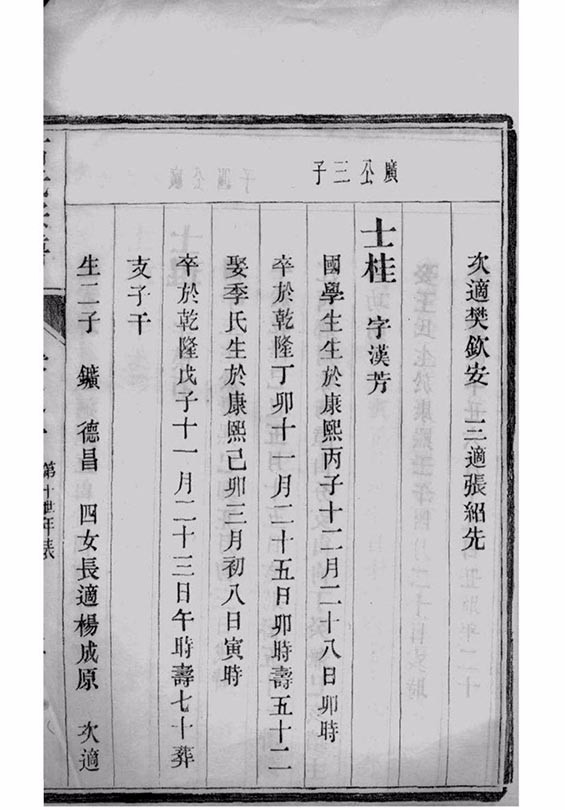 廣公三子
次適樊欽安 三適張紹先
士桂 字漢芳
國學生生於康熙丙子十二月二十八日卯時
卒於乾隆丁卯十一月二十五日卯時壽五十二
娶季氏生於康熙己卯三月初八日寅時
卒於乾隆戊子十一月二十三日午時壽七十葬
支子干
生二子 鑛 德昌 四女長適楊成原 次適
第十世年表